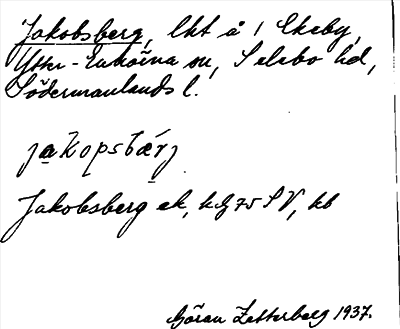 Jakobsberg, lht å 1 Ekeby,
Ytter-Enhörna sn, Selebo hd,
Södermanlands l.
jakopsbærj
Jakobsberg ek, hbg 75 SV, kb
Göran Zetterberg 1937.